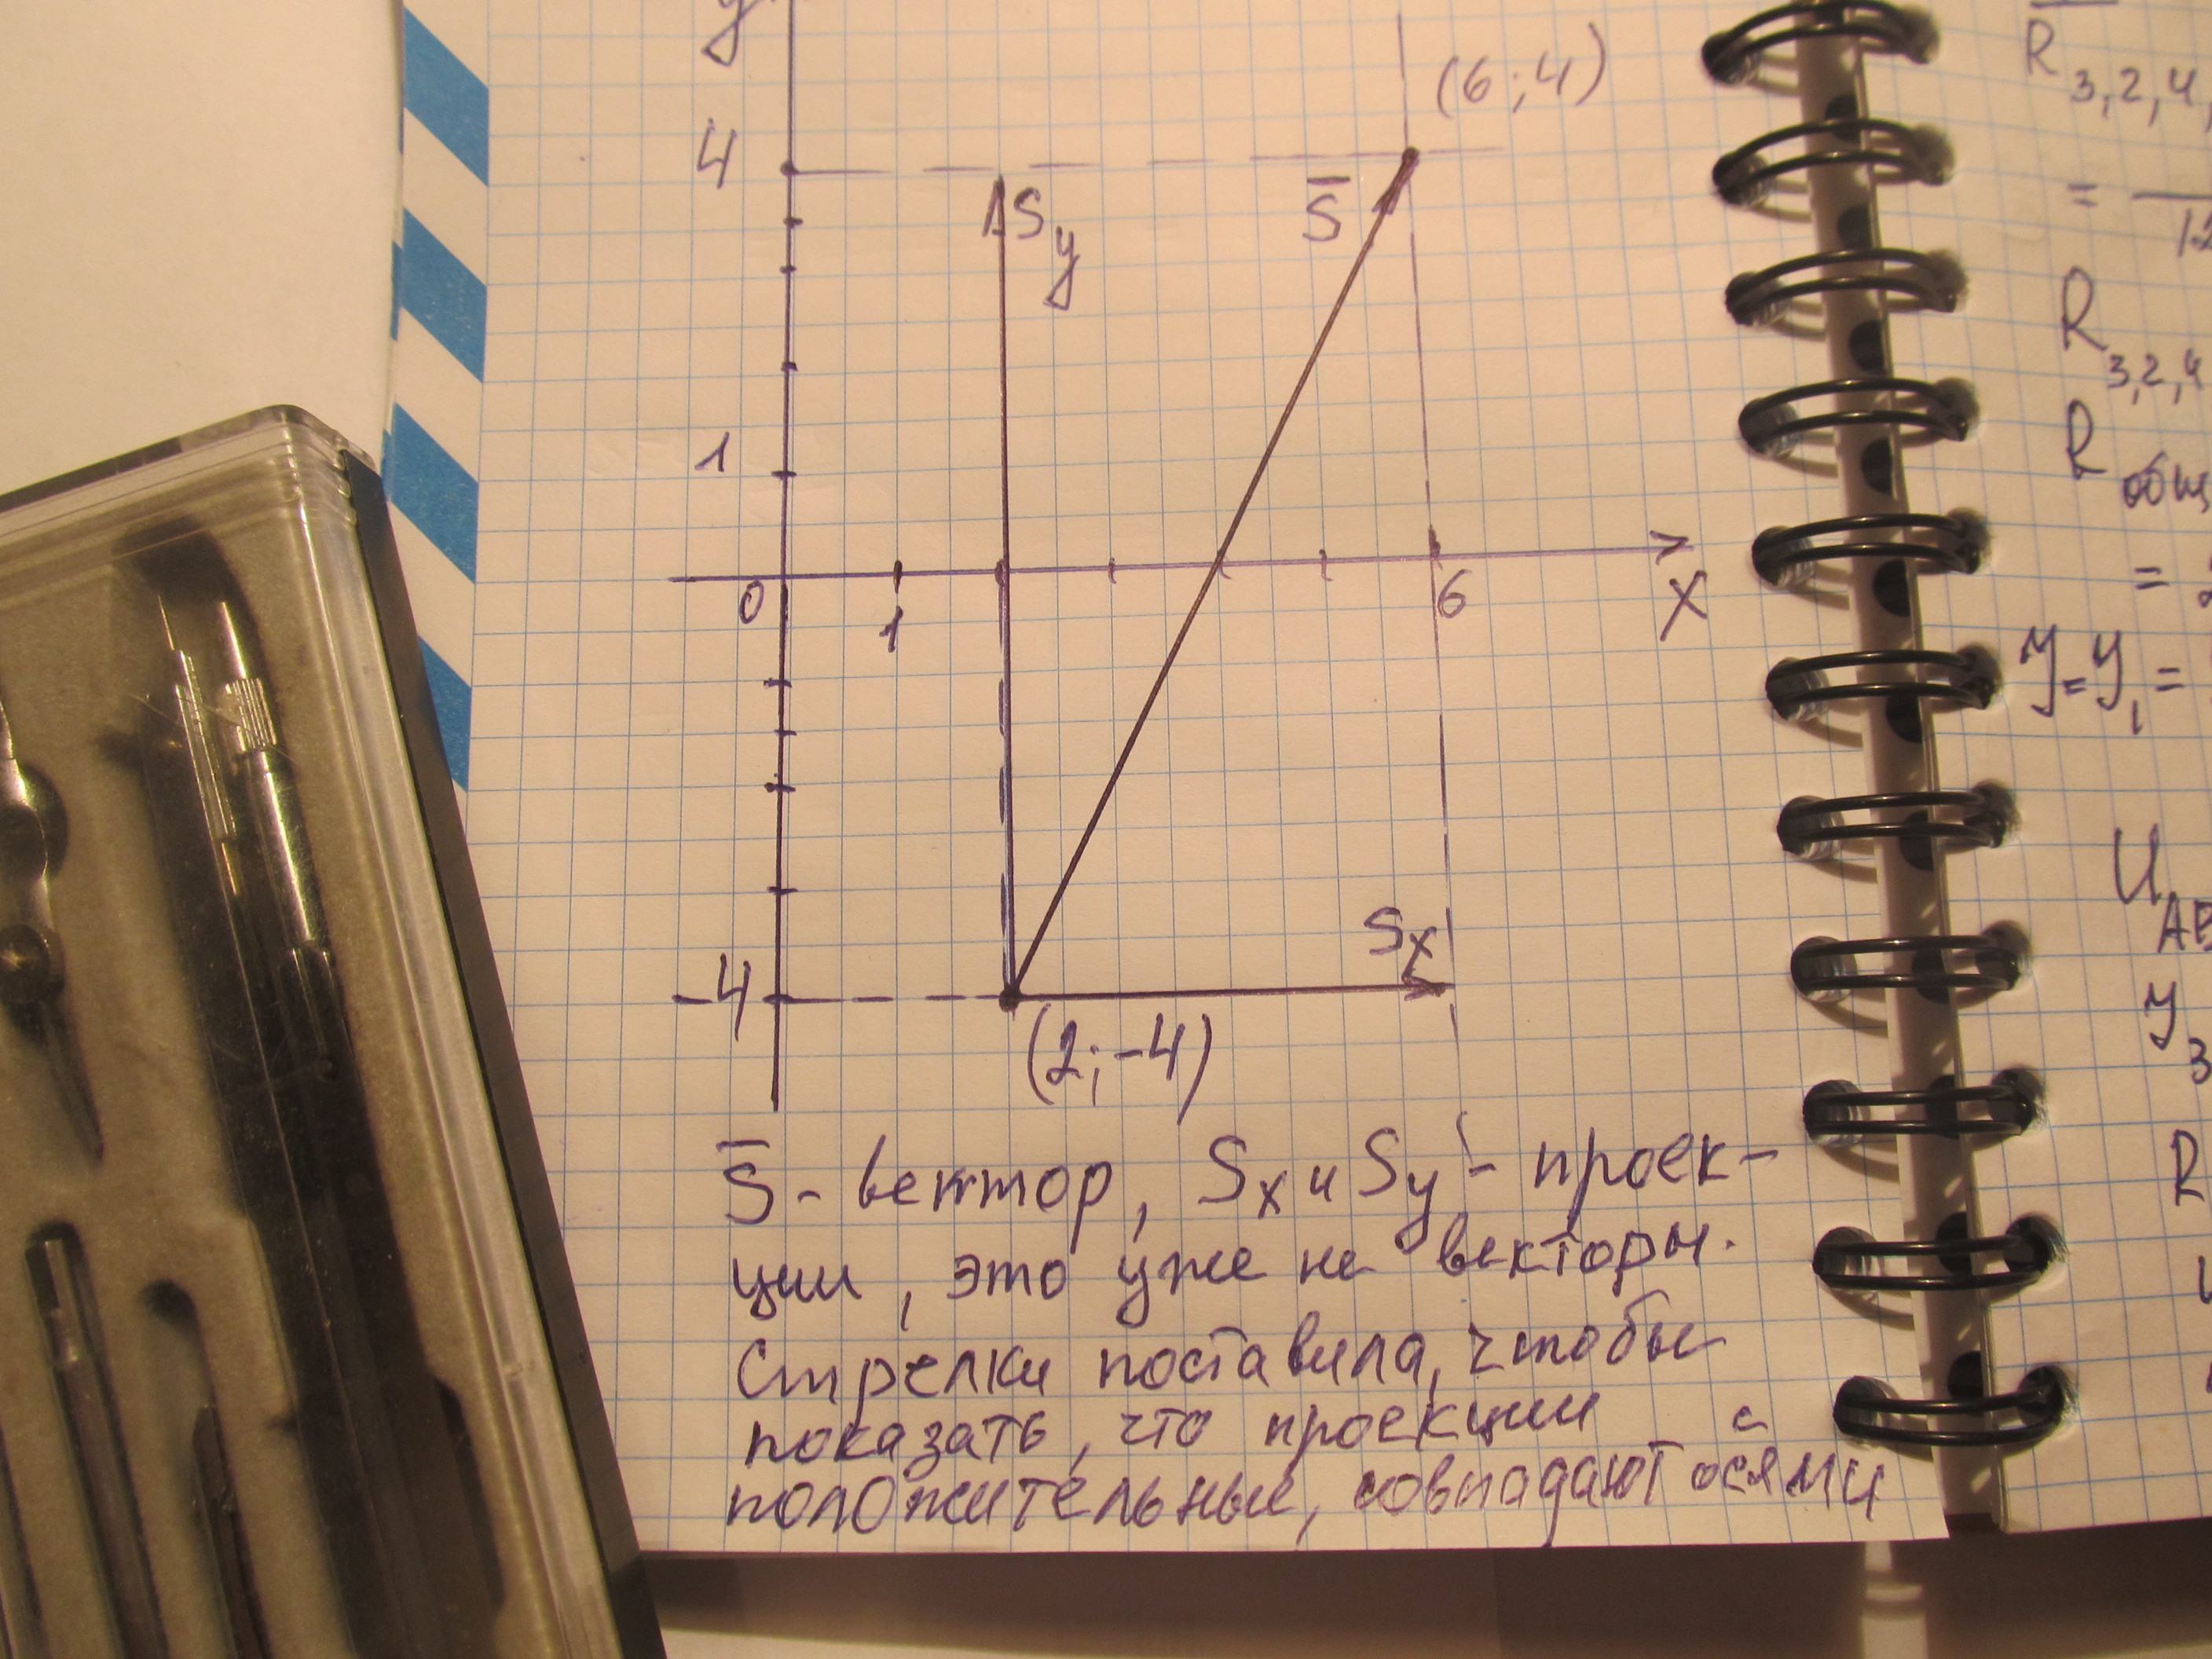 y
(6;4)
4
S̅
Sy
1
0
1
6
X
Sx
-4
(2;-4)
S̅ - вектор, Sx и Sy - проек-
ции, это уже не векторы.
Стрелки поставила, чтобы
показать, что проекции
положительные, совпадают с осями
R 3,2,4,
=
12
R 3,2,4
R общ
= 2
У=У1=
U AB
У3
R